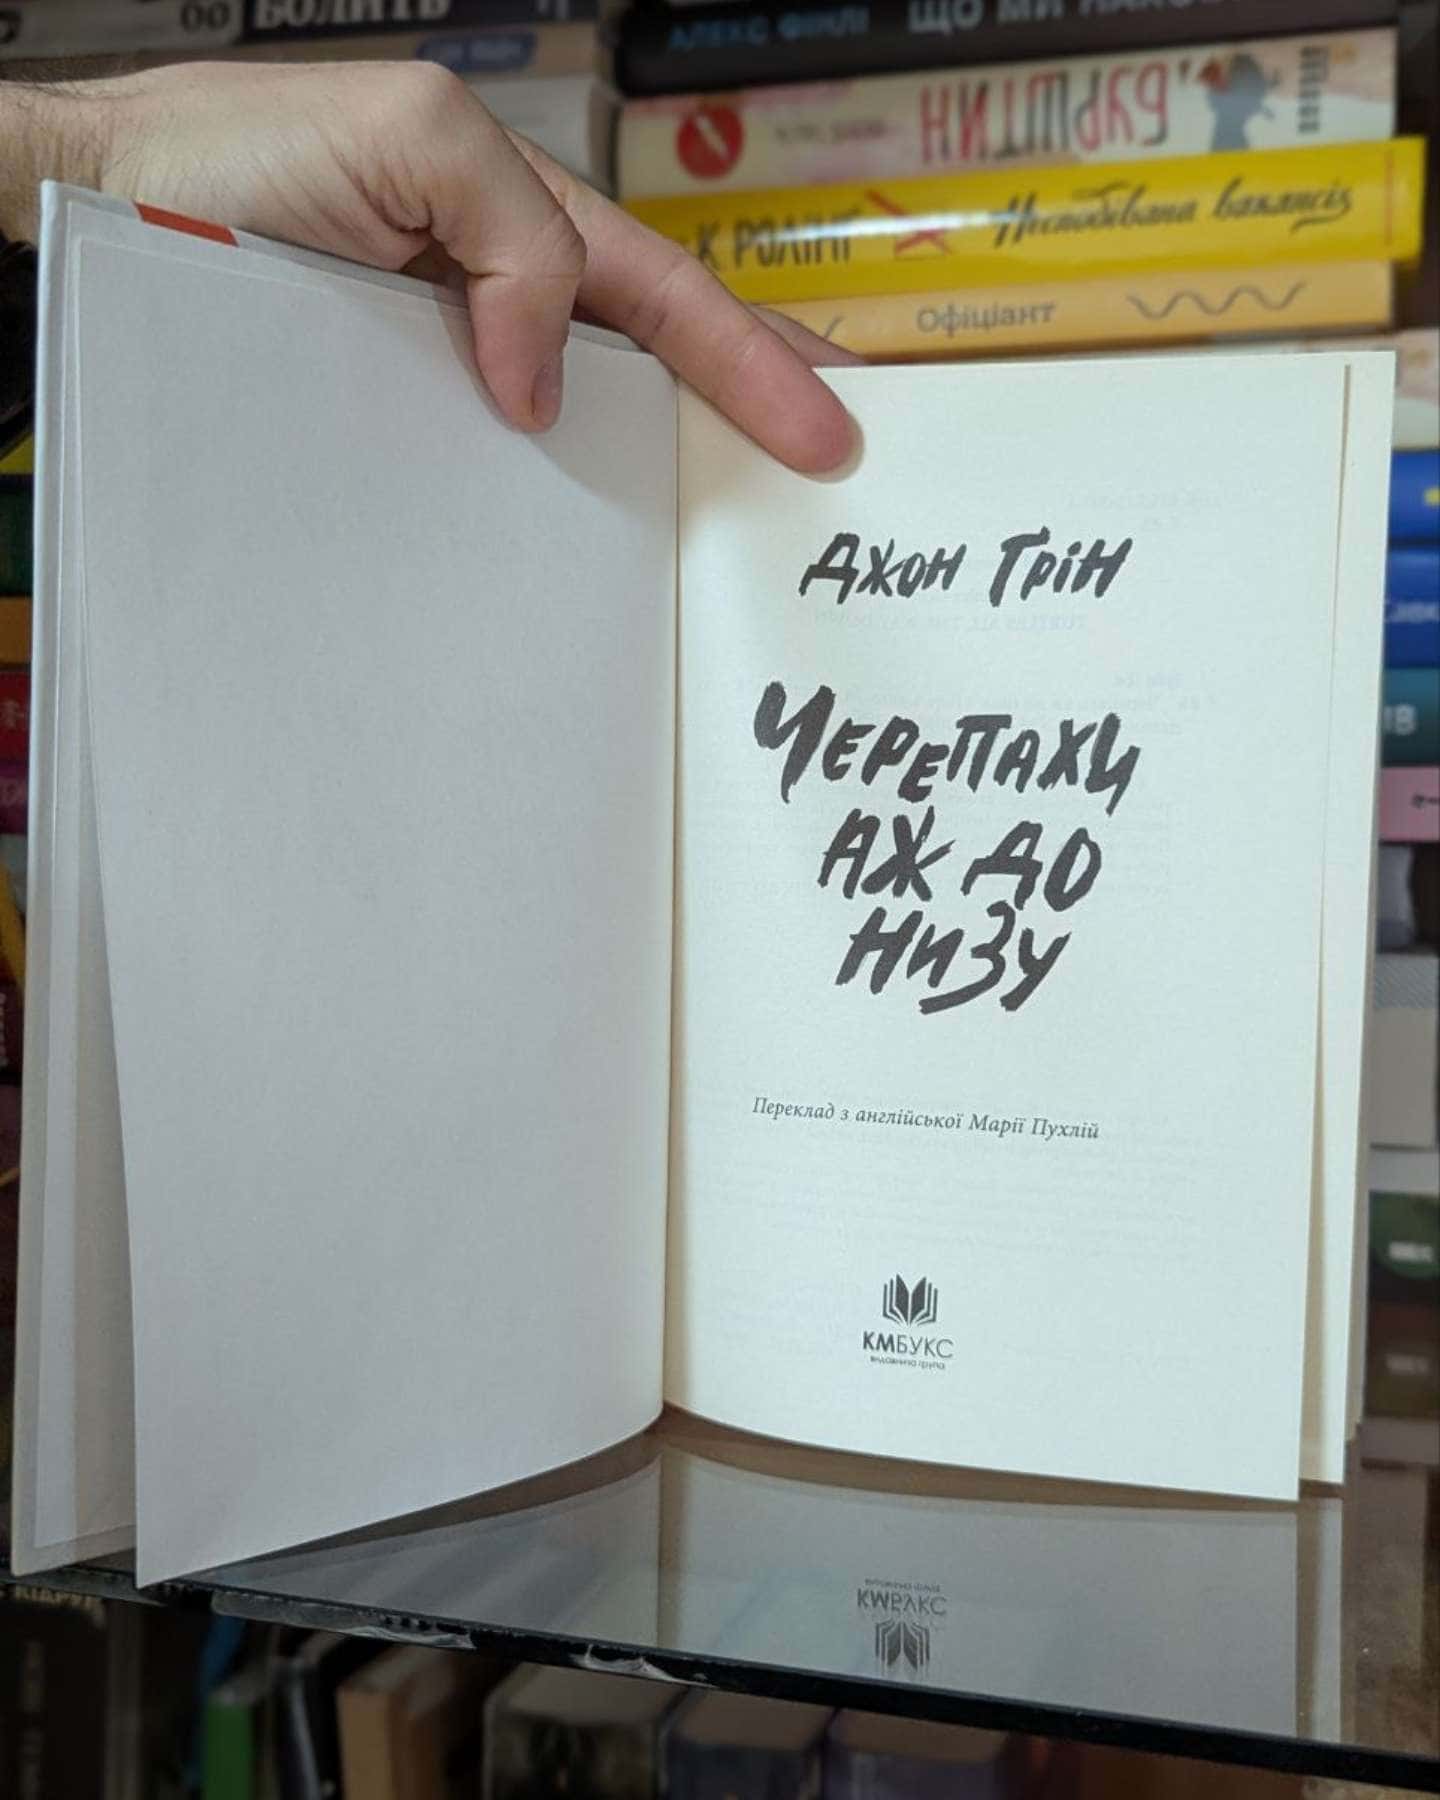 БОЛИТЬ
АЛЕКС ФІНЛІ ЩО МИ
БУРШТИН
К РОЛІНГ Несподівана вакансія
Офіціант
Джон Ґрін
Черепахи
аж до
низу
Переклад з англійської Марії Пухлій
КМБУКС
видавнича група